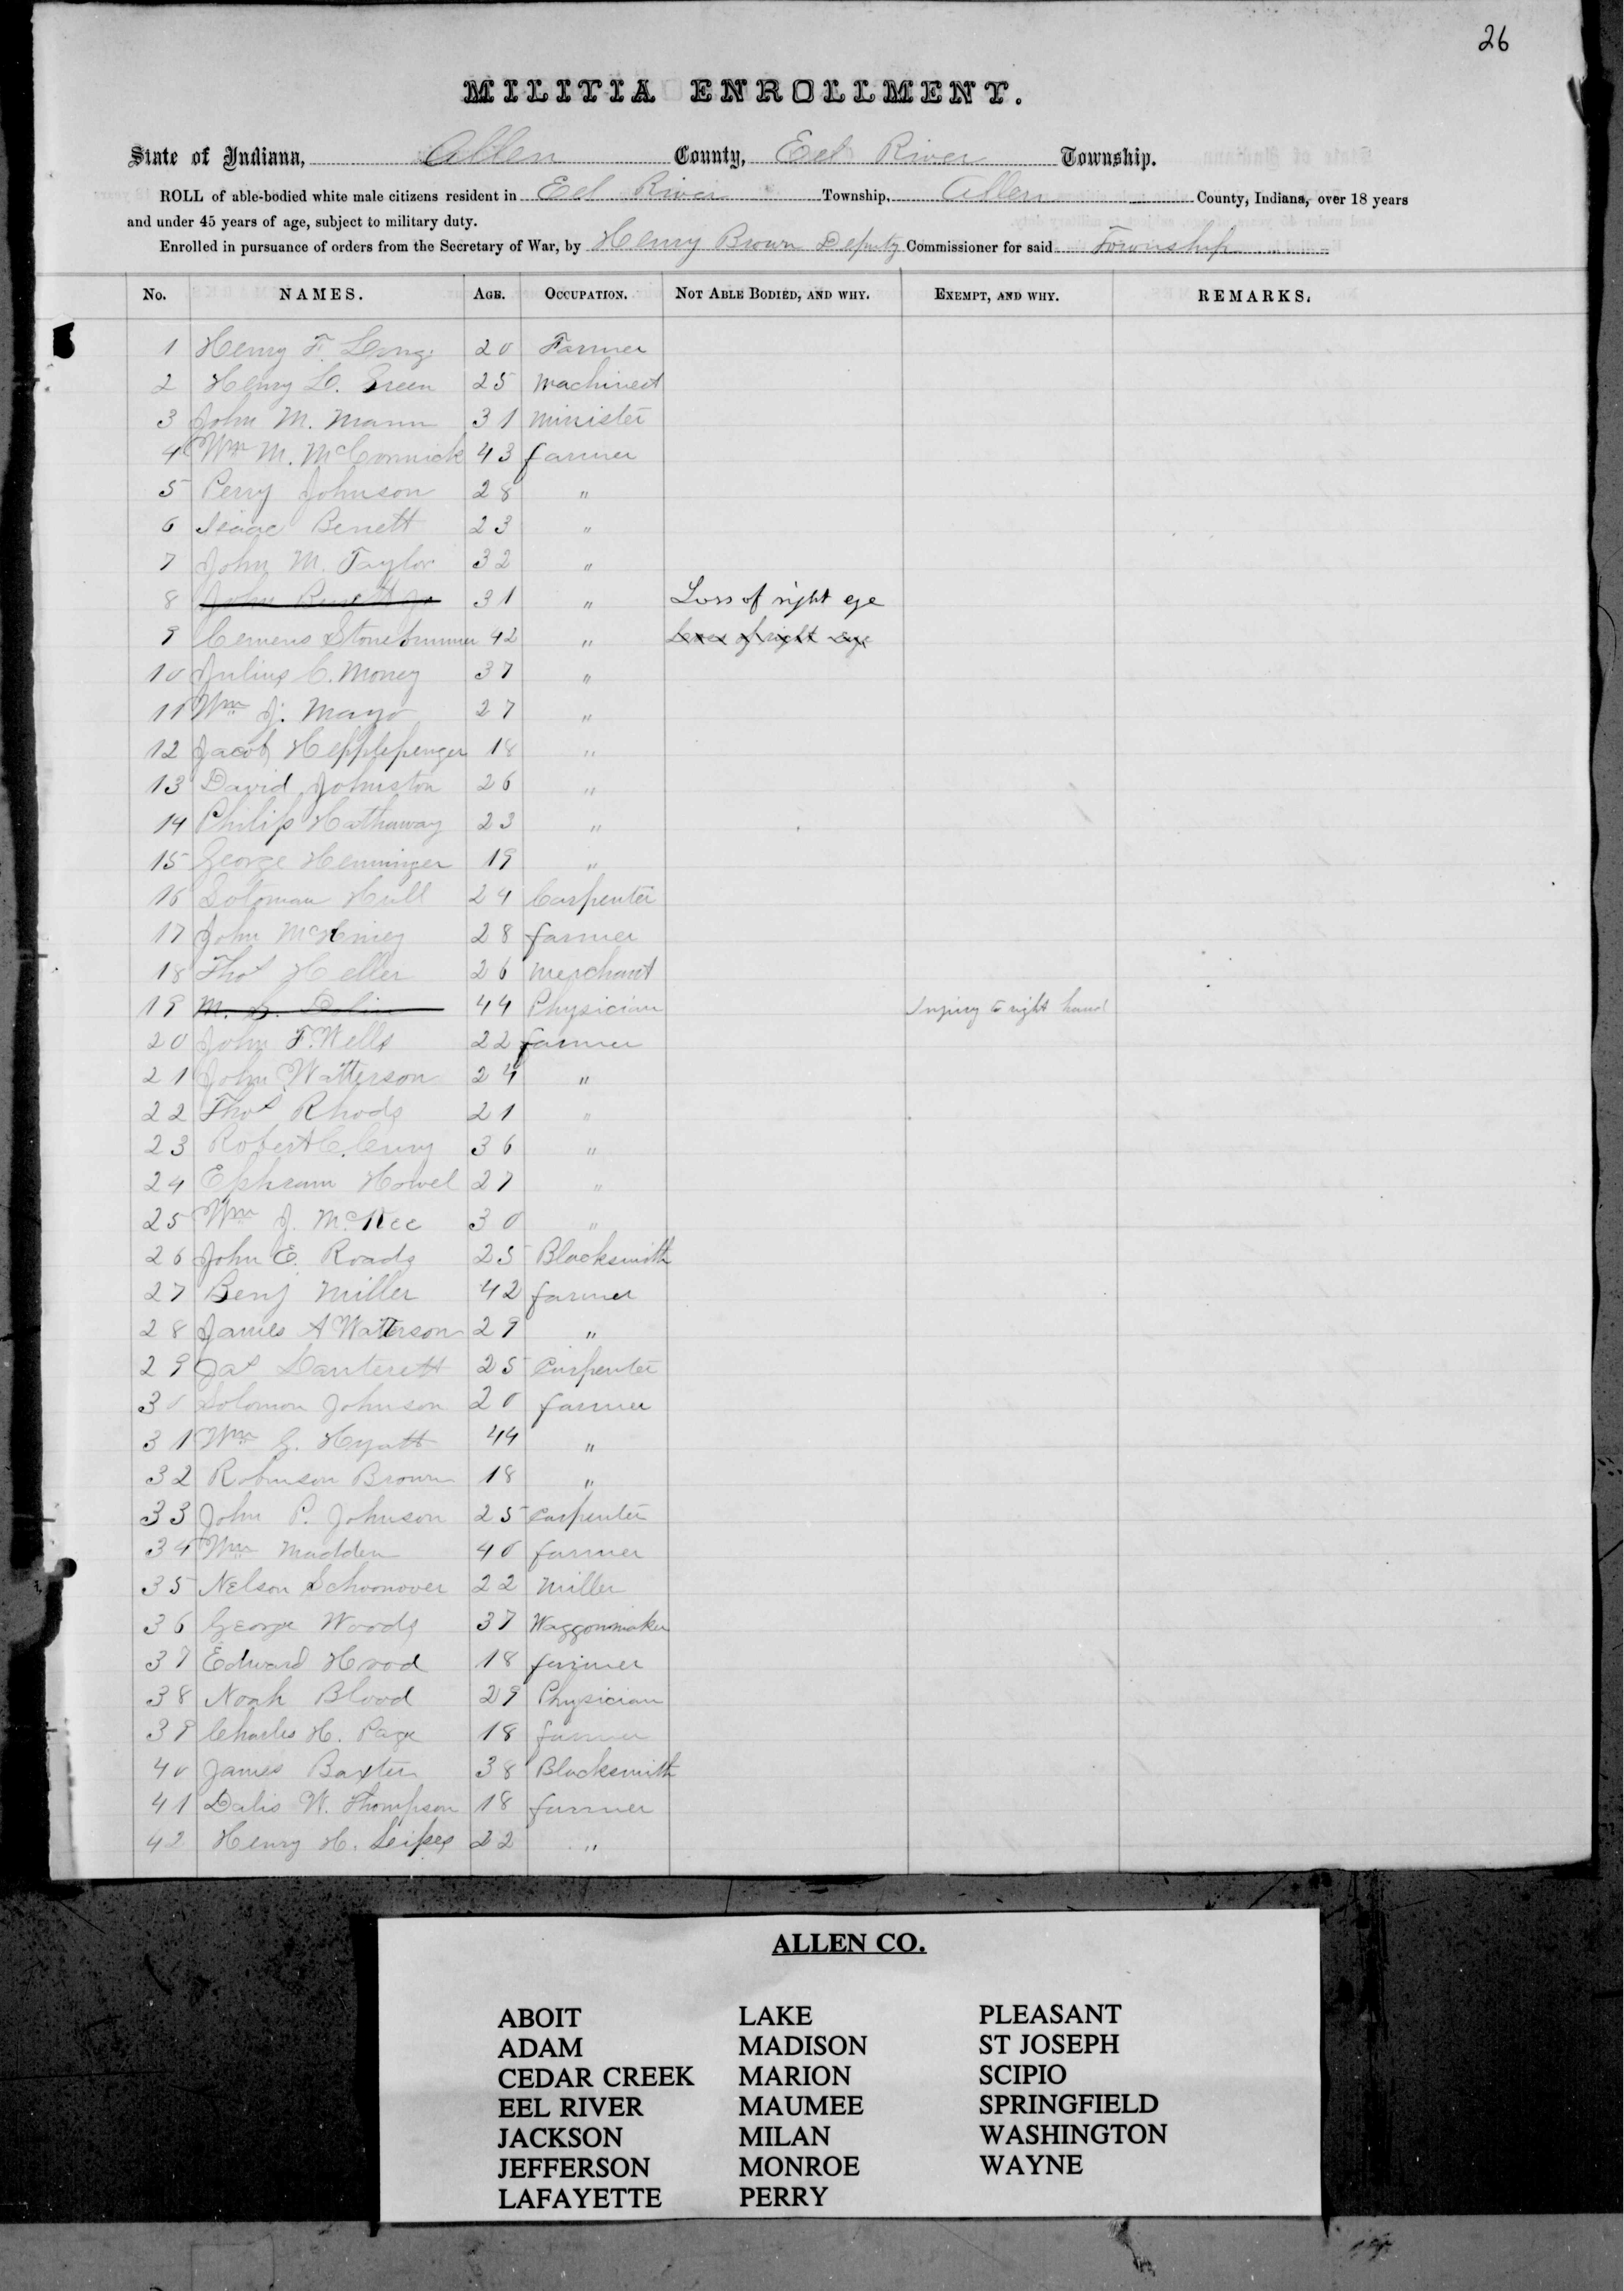 26
MILITIA ENROLLMENT.
State of Indiana, Allen County, Eel River Township.
ROLL of able-bodied white male citizens resident in Eel River Township, Allen County, Indiana, over 18 years
and under 45 years of age, subject to military duty.
Enrolled in pursuance of orders from the Secretary of War, by Henry Brown Deputy Commissioner for said Township
No. NAMES. AGE. OCCUPATION. NOT ABLE BODIED, AND WHY. EXEMPT, AND WHY. REMARKS.
1 Henry F. Long 20 Farmer
2 Henry L. Green 25 Machinest
3 John M. Mann 31 Minister
4 Wm M. McCormick 43 farmer
5 Perry Johnson 28 "
6 Isaac Benett 23 "
7 John M. Taylor 32 "
8 John Benett Jr 31 " Loss of right eye
9 Clemens Stonebrunner 42 " Loss of right eye
10 Julius C. Money 37 "
11 Wm J. Mayo 27 "
12 Jacob Hepplepenger 18 "
13 David Johnston 26 "
14 Philip Hathaway 23 "
15 George Henninger 19 "
16 Soloman Hull 24 Carpenter
17 John 28 farmer
18 Thos Heller 26 Merchant
19 M. 44 Physician Injury to right hand
20 John F. Wells 22 farmer
21 John Watterson 24 "
22 Thos Rhods 21 "
23 Robert C. 36 "
24 Ephraim Howel 27 "
25 Wm J. McKee 30 "
26 John E. Roads 25 Blacksmith
27 Benj Miller 42 farmer
28 James A Watterson 29 "
29 Jas 25 Carpenter
30 Solomon Johnson 20 farmer
31 Wm G. Hyatt 44 "
32 Robinson Brown 18 "
33 John P. Johnson 25 Carpenter
34 Wm Madden 40 farmer
35 Nelson Schoonover 22 Miller
36 George Woods 37 Waggonmaker
37 Edward Hood 18 farimer
38 Noah Blood 29 Physician
39 Charles H. Page 18 farmer
40 James Baxter 38 Blacksmith
41 Dalis W. Thompson 18 farmer
42 Henry H. 22 "
ALLEN CO.
ABOIT LAKE PLEASANT
ADAM MADISON ST JOSEPH
CEDAR CREEK MARION SCIPIO
EEL RIVER MAUMEE SPRINGFIELD
JACKSON MILAN WASHINGTON
JEFFERSON MONROE WAYNE
LAFAYETTE PERRY